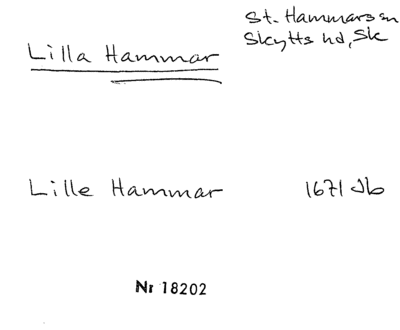 St. Hammars sn
Skytts hd, Sk
Lilla Hammar
Lille Hammar 1671 Jb
Nr 18202